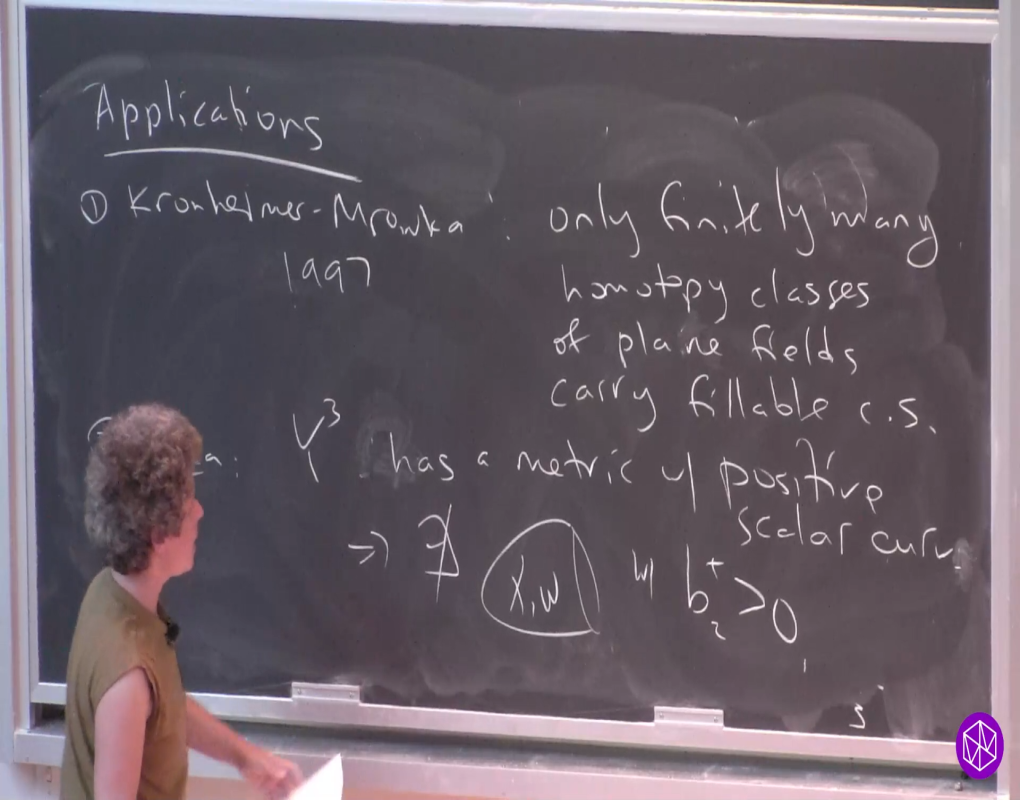 Applications
① Kronheimer-Mrowka : only finitely many
1997
homotopy classes
of plane fields
carry fillable c.s.
Y³ has a metric w/ positive
scalar curv.
⇒ ∄ X, ω w/ b₂⁺ > 0